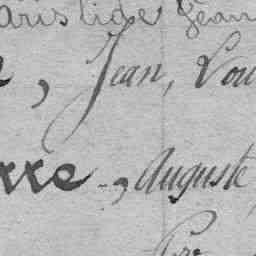 aristide Jean
, Jean, Lou
rre -, Auguste